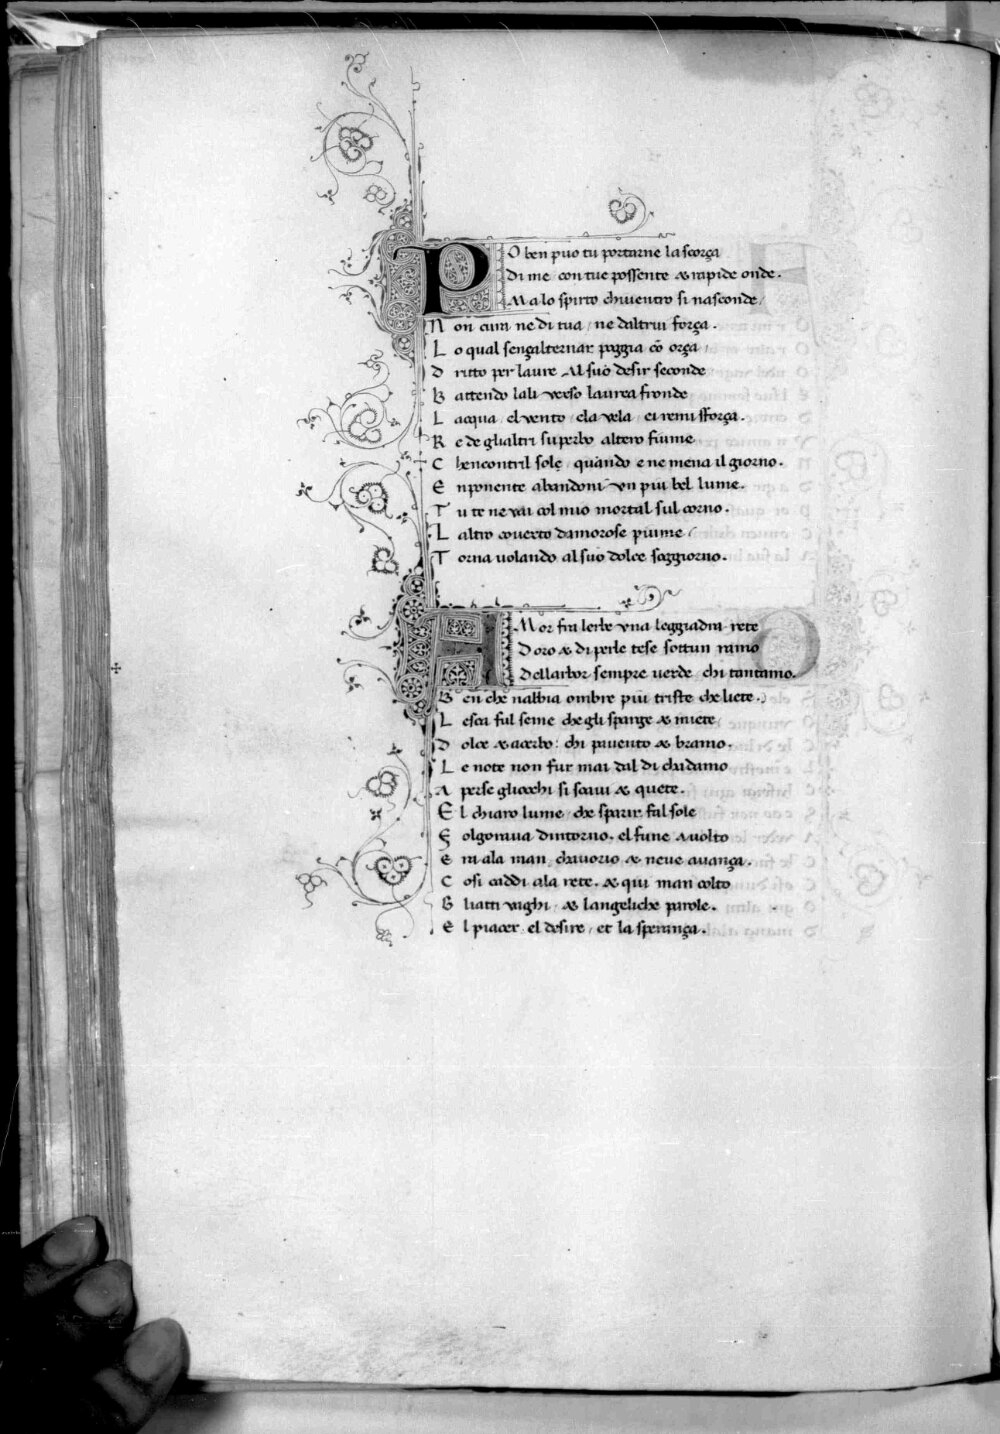 PO ben puo tu portarne la scorça
Di me con tue possente & rapide onde.
Ma lo spirto chiventro si nasconde/
Non cura ne di tua/ ne daltrui força.
Lo qual sençalternar poggia cō orça/
Dritto per laure Al suo desir seconde
Battendo lali verso laurea fronde
Lacqua/ el vento/ ela vela/ ei remi sforça.
Re de glialtri superbo altero fiume
Chencontril sole/ quando e ne mena il giorno.
Enponente abandoni vn piu bel lume.
Tu te ne vai col mio mortal sul corno.
Laltro coverto damorose piume/
Torna uolando al suo dolce soggiorno.
AMor fra lerbe vna leggiadra rete
Doro & di perle tese sottun ramo
Dellarbor sempre uerde chi tantamo.
Ben che nabbia ombre piu triste che liete.
Lesca ful seme che gli sparge & miete/
Dolce & acerbo: chi pavento & bramo.
Le note non fur mai dal di chadamo
Aperse gliocchi si soaui & quete.
El chiaro lume/ che sparir fal sole
Folgorava dintorno. el fune avolto
Era ala man/ chavorio & neve avança.
Cosi caddi ala rete. & qui man colto
Gliatti vaghi/ & langeliche parole.
El piacer/ el desire/ et la sperança.